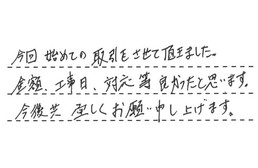 今回 始めての 取引をさせて頂ました。
金額、工事日、対応 等 良かったと思います。
今後共 宜しくお願い申し上げます。